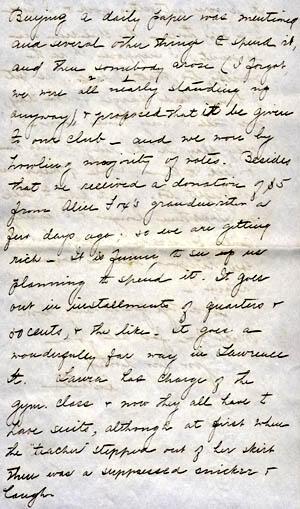 Buying a daily paper was mentioned
and several other things to spend it,
and then somebody arose (I forgot
we were all nearly standing up
anyway), & proposed that it be given
to our club - and we won by
howling majority of votes. Besides
that we received a donation of $5
from Alice Fox's grandmother a
few days ago. so we are getting
rich - It is funny to see us
planning to spend it. It goes
out in installments of quarters &
50 cents, & the like - It goes a
wonderfully far way in Lawrence
St. Laura has charge of the
gym. class & now they all have to
have suits, although at first when
the "teacher" stepped out of her skirt
there was a suppressed snicker &
laugh.